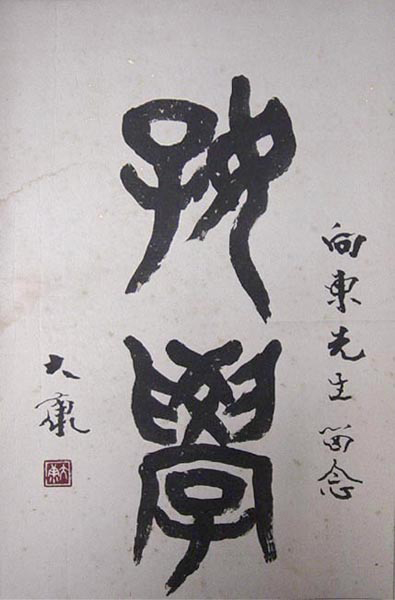 向東先生留念
好學
大康
大康